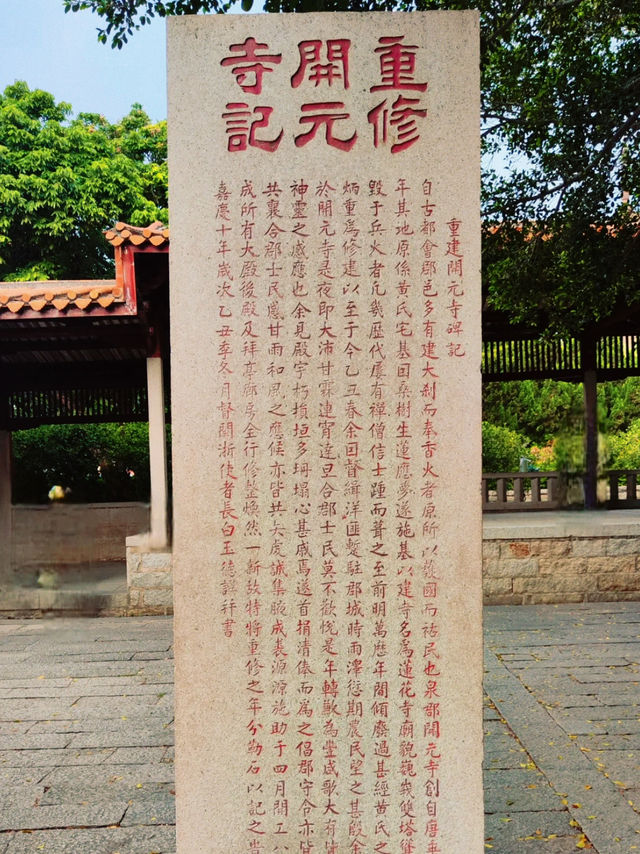 重修
開元
寺記
重建開元寺碑記
自古都會郡邑多有建大剎而奉香火者原所以護國而祐民也泉郡開元寺創自唐垂
年其地原係黃氏宅基因桑樹生蓮應夢遂施基以建寺名為蓮花寺廟貌巍峩雙塔聳
毀于兵火者凡幾歷代屢有禪僧信士踵而葺之至前明萬歷年間傾廢過甚經黃氏之
炳重為修建以至于今乙丑春余回督緝洋匪蹔駐郡城時雨澤愆期農民望之甚殷余
於開元寺是夜即大沛甘霖連宵達旦合郡士民莫不歡悅是年轉歉為豐咸歌大有皆
神靈之感應也余見殿宇朽損垣多坍塌心甚戚焉遂首捐清俸而為之倡郡守令亦皆
共襄合郡士民感甘雨和風之應候亦皆共矢虔誠集腋成裘源源施助于四月開工八
成所有大殿後殿及拜亭廊房全行修整煥然一新故特將重修之年分勒石以記之峕
嘉慶十年歲次乙丑季冬月督閩浙使者長白玉德謹拜書